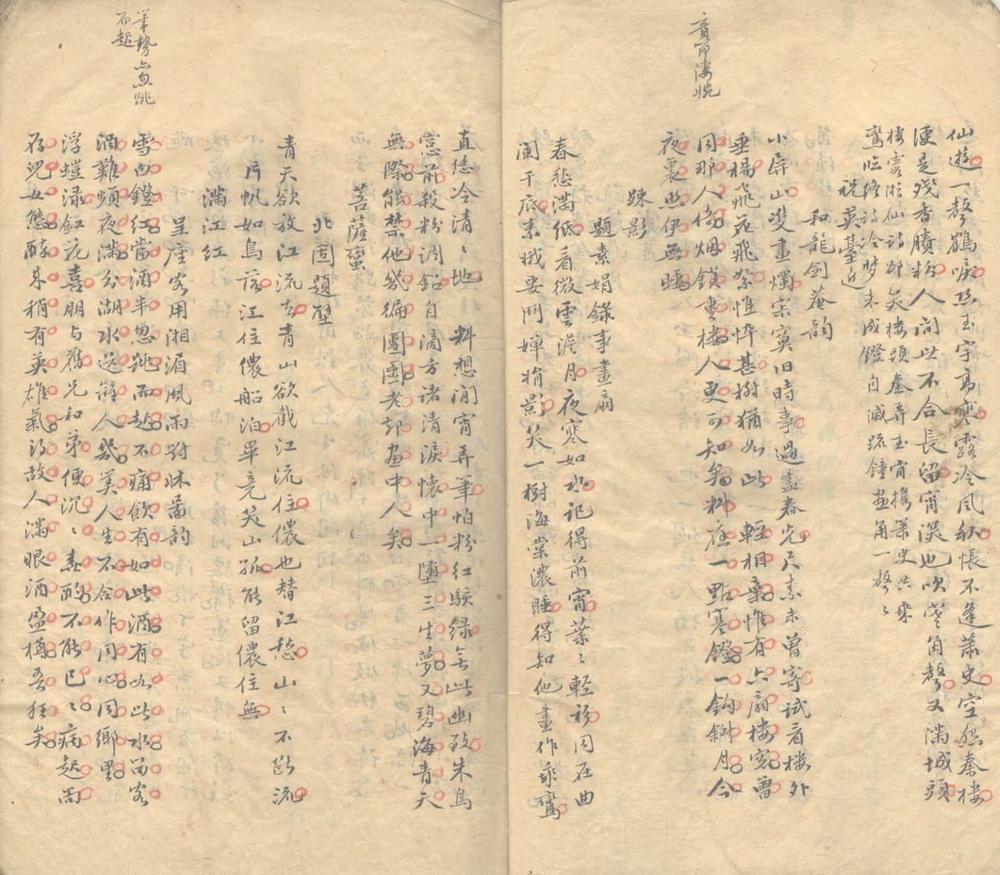 音節淒婉
仙游一聲鶴唳碧玉宇高寒露冷風紈悵不逢蕭史空怨秦樓
便是殘香賸粉人間此不合長留宵深也吹瓊角聲又滿城頭
樓頭秦弄玉宵攜葉史共乘
鸞臨終詩冷夢未成鐙自滅疏鐘畫角一聲聲
祝英臺近
和龍劍菴韻
小屏山雙畫燭寂寞旧時事過盡春光只未曾寄試看樓外
垂楊飛花飛絮惟悴甚樹猶如此 輕相棄惟有六扇樓窗曾
同那人倚烟鎖畫樓人更可知矣料應一點寒鐙一鈎斜月今
夜裏照伊無睡
疎影
題素娟錄事畫扇
春愁滿低看微雲澹月夜寒如水記得前宵葉葉輕衫同在曲
闌干底素娥要鬥嬋娟影笑一樹海棠濃睡得知他畫作乘鸞
直恁冷清清地 料想閒宵弄筆怕粉紅駭綠無此幽致朱鳥
窓前殺粉調鉛自滴方諸清淚懷中一墮三生夢又碧海青天
無際能禁他幾徧團圞老却畫中人矣
菩薩蠻
北固題壁
青天欲放江流去青山欲截江流住儂也替江愁山山不斷流
片帆如鳥落江住儂船泊畢竟笑山孤能留儂住無
滿江紅
呈座客用湘湄風雨對牀啚韵
筆勢亦魚跳
而起
雪白鐙紅當酒半忽跳而起不痛飲有如此酒有如此水留客
酒難頭夜滿分湖水送諸人幾美人生不合作同心同鄉里
浮螘渌釭花喜朋与舊兄和弟便沉沉毒醉不能已已病起尚
存兒女態醉來稍有英雄氣得故人滿眼酒盈樽吾狂矣